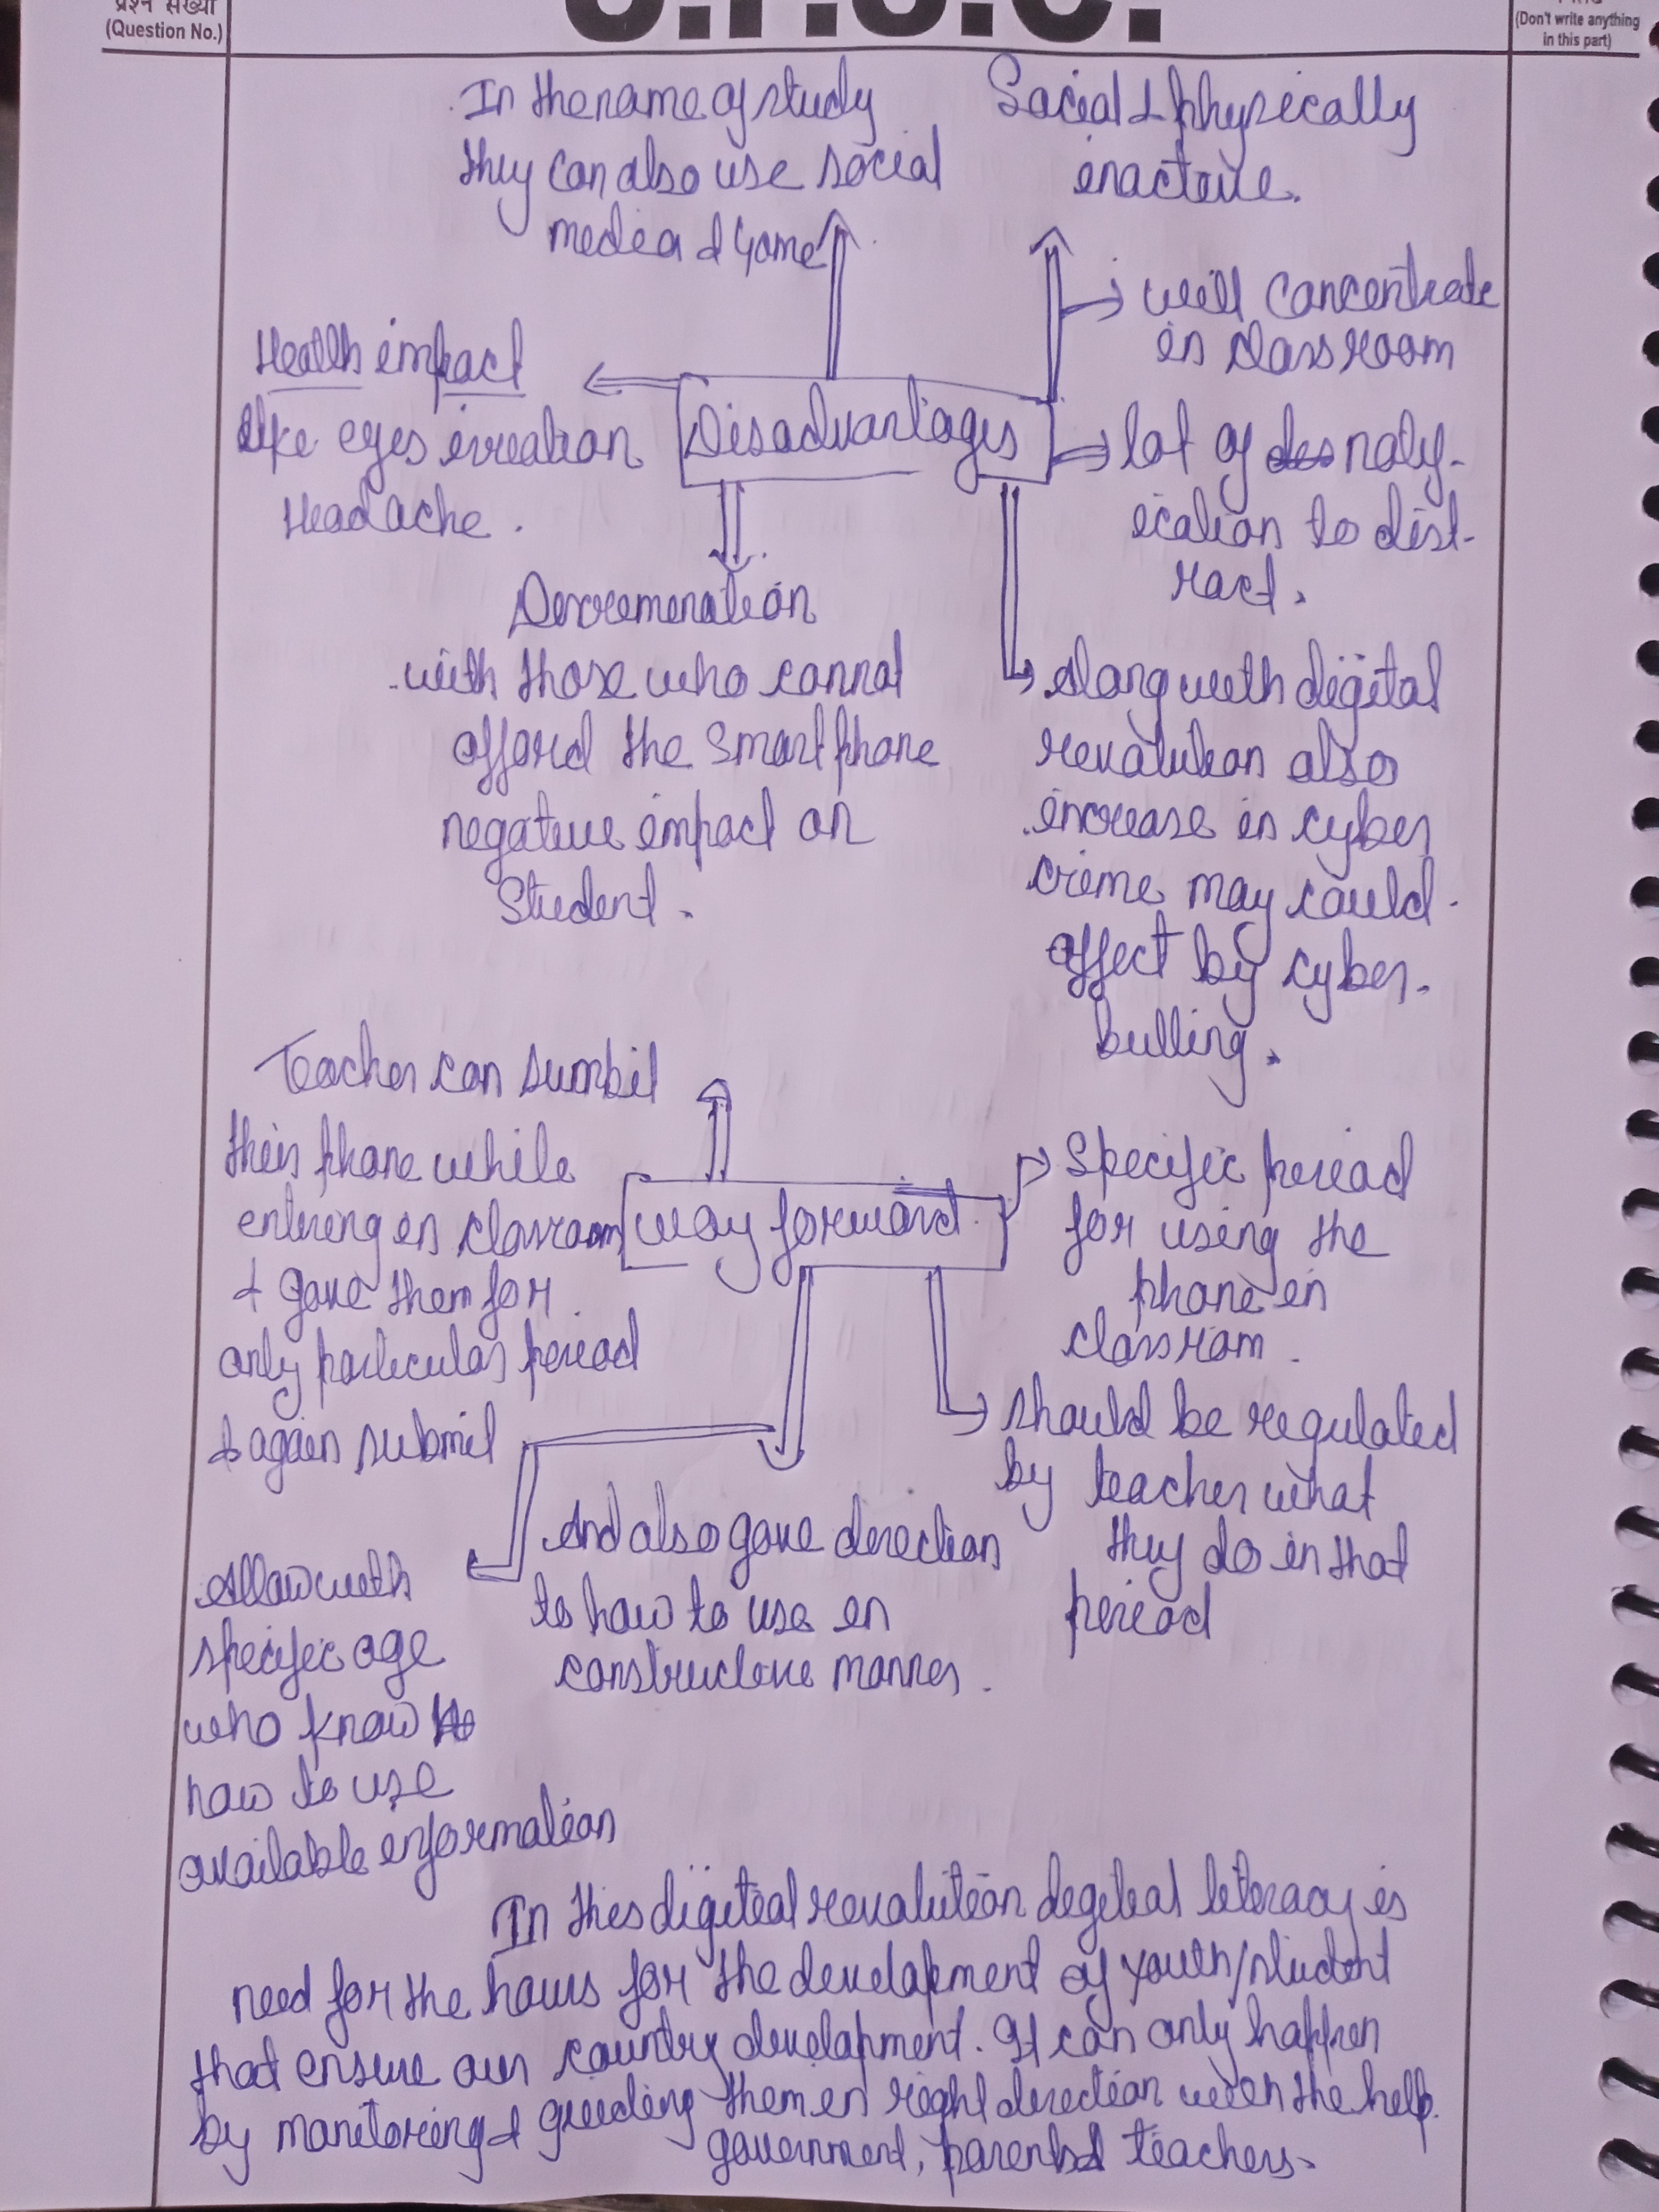 प्रश्न संख्या
(Question No.)
(Don't write anything
in this part)
In the name of study
they can also use social
media & Game
Social & physically
inactive.
→ will concentrate
in classroom
Health impact
like eyes irreation
Headache.
Disadvantages
lot of notify-
ication to dist-
ract.
Discremenation
with those who cannot
afford the smart phone
negative impact on
student.
Along with digital
revalution also
increase in cyber
crime may could
affect by cyber.
bulling.
Teacher can sumbit
their phone while
entering in classroom
& gave them for
only particular period
& again submit
way forward.
Specific period
for using the
phone in
classroom.
should be regulated
by teacher what
they do in that
period
And also gave direction
to how to use in
constructive manner.
Allow with
specific age
who know
how to use
available information
In this digiteal revalution degiteal literacy is
need for the hours for the development of youth/student
that ensure our country development. It can only happen
by monitoring & guiding them in right direction with the help
government, parents & teachers.